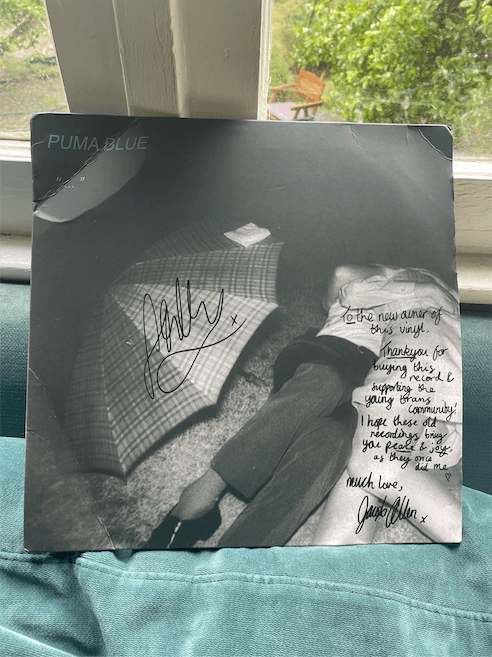 PUMA BLUE
"..."
To the new owner of
this vinyl.
Thankyou for
buying this
record &
supporting the
young trans
community!
I hope these old
recordings bring
you peace & joy,
as they once
did me
♡
much love,
Jacob Allen x